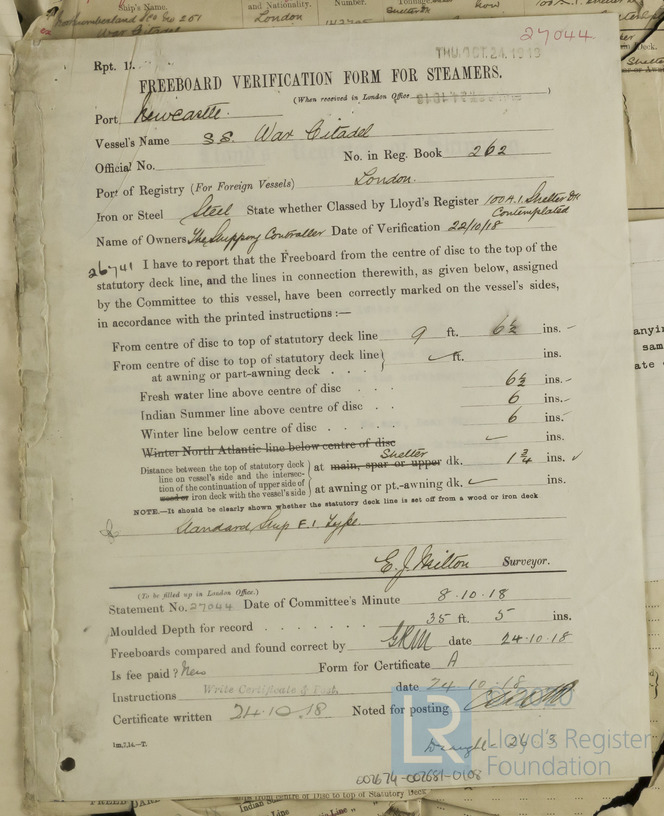 Ship's Name.
and Nationality.
Number.
Tonnage.
how
London
27044.
THU. OCT. 24. 1918
Rpt. 11.
FREEBOARD VERIFICATION FORM FOR STEAMERS.
(When received in London Office )
Port Newcastle.
Vessel's Name S.S. War Citadel
Official No. No. in Reg. Book 262
Port of Registry (For Foreign Vessels) London.
Iron or Steel Steel State whether Classed by Lloyd's Register 100 A.1. Shelter Dk
Contemplated
Name of Owners The Shipping Controller Date of Verification 22/10/18
26741 I have to report that the Freeboard from the centre of disc to the top of the
statutory deck line, and the lines in connection therewith, as given below, assigned
by the Committee to this vessel, have been correctly marked on the vessel's sides,
in accordance with the printed instructions :—
From centre of disc to top of statutory deck line 9 ft. 6½ ins.
From centre of disc to top of statutory deck line
at awning or part-awning deck . . . ft. ins.
Fresh water line above centre of disc . . . 6½ ins.
Indian Summer line above centre of disc . . 6 ins.
Winter line below centre of disc . . . 6 ins.
Winter North Atlantic line below centre of disc ins.
Distance between the top of statutory deck
line on vessel's side and the intersec-
tion of the continuation of upper side of
wood or iron deck with the vessel's side
Shelter
at main, spar or upper dk. 1 ¾ ins.
at awning or pt.-awning dk. ins.
NOTE.—It should be clearly shown whether the statutory deck line is set off from a wood or iron deck
Standard Ship F.1 Type.
E. J. Milton Surveyor.
(To be filled up in London Office.)
Statement No. 27044 Date of Committee's Minute 8.10.18
Moulded Depth for record . . . . . . . 35 ft. 5 ins.
Freeboards compared and found correct by GRM date 24.10.18
Is fee paid? New Form for Certificate A
Instructions Write Certificate & Post date 24.10.18
Certificate written 24.10.18 Noted for posting
1m,7,14.—T.
Draught - 26 3
LR
© 2020
Lloyd's Register
Foundation
002674-002681-0108